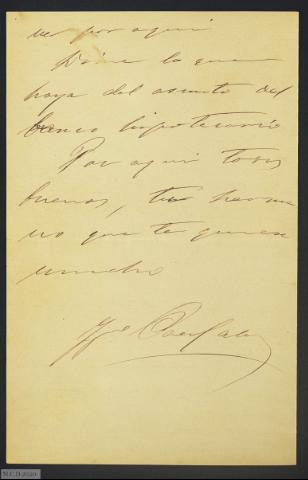 ver por aqui
Dime lo que
haya del asunto del
banco hipotecario
Por aqui todos
buenos, tu herma
no que te quiere
mucho
M.C.D. 2020